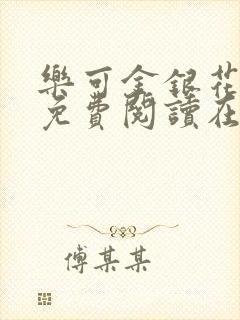 樂可金銀花
免費閱讀在
傅某某